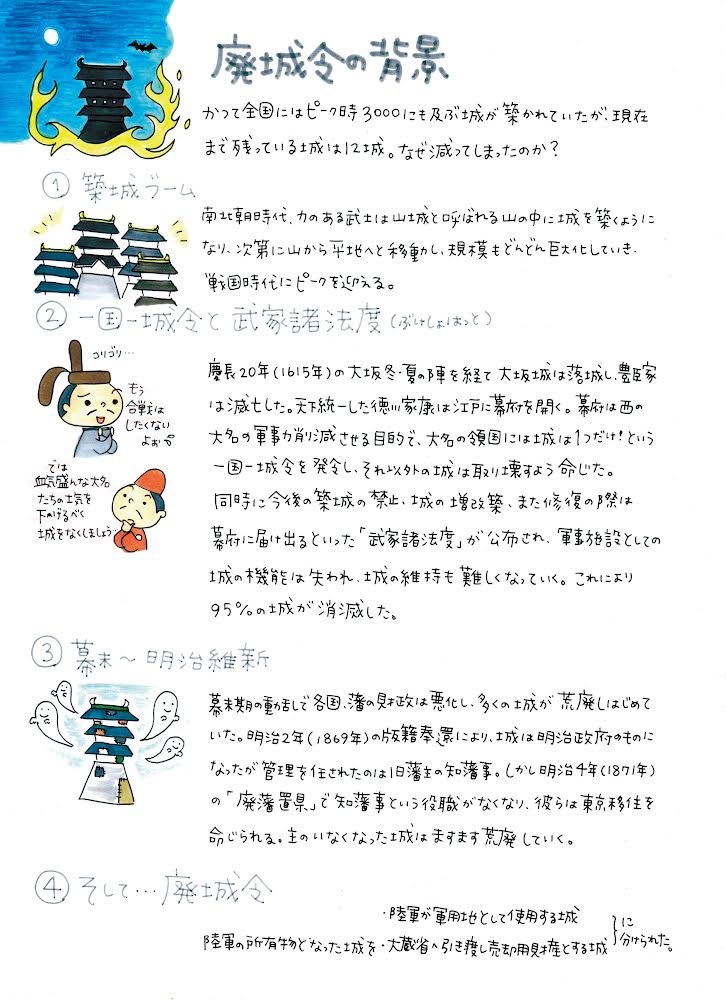 廃城令の背景
かつて全国にはピーク時3000にも及ぶ城が築かれていたが、現在
まで残っている城は12城。なぜ減ってしまったのか？
① 築城ブーム
南北朝時代、力のある武士は山城と呼ばれる山の中に城を築くように
なり、次第に山から平地へと移動し、規模もどんどん巨大化していき、
戦国時代にピークを迎える。
② 一国一城令と武家諸法度（ぶけしょはっと）
コリゴリ…
もう
合戦は
したくない
よぉ
では
血気盛んな大名
たちの士気を
下げるべく
城をなくしましょう…
慶長20年(1615年)の大坂冬・夏の陣を経て大坂城は落城し、豊臣家
は滅亡した。天下統一した徳川家康は江戸に幕府を開く。幕府は西の
大名の軍事力削減させる目的で、大名の領国には城は1つだけ！という
一国一城令を発令し、それ以外の城は取り壊すよう命じた。
同時に今後の築城の禁止、城の増改築、また修復の際は
幕府に届け出るといった「武家諸法度」が公布され、軍事施設としての
城の機能は失われ、城の維持も難しくなっていく。これにより
95%の城が消滅した。
③ 幕末～明治維新
幕末期の動乱で各国、藩の財政は悪化し、多くの城が荒廃しはじめて
いた。明治2年(1869年)の版籍奉還により、城は明治政府のものに
なったが管理を任されたのは旧藩主の知藩事。しかし明治4年(1871年)
の「廃藩置県」で知藩事という役職がなくなり、彼らは東京移住を
命じられる。主のいなくなった城はますます荒廃していく。
④ そして…廃城令
・陸軍が軍用地として使用する城
陸軍の所有物となった城を・大蔵省へ引き渡し売却用財産とする城
に
分けられた。